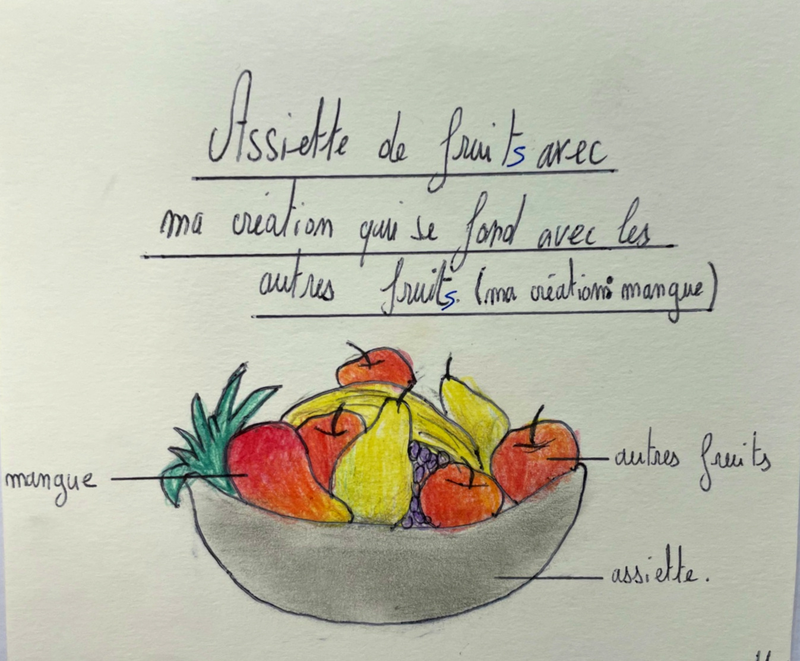 Assiette de fruits avec
ma création qui se fond avec les
autres fruits. (ma création: mangue)
mangue
autres fruits
assiette.